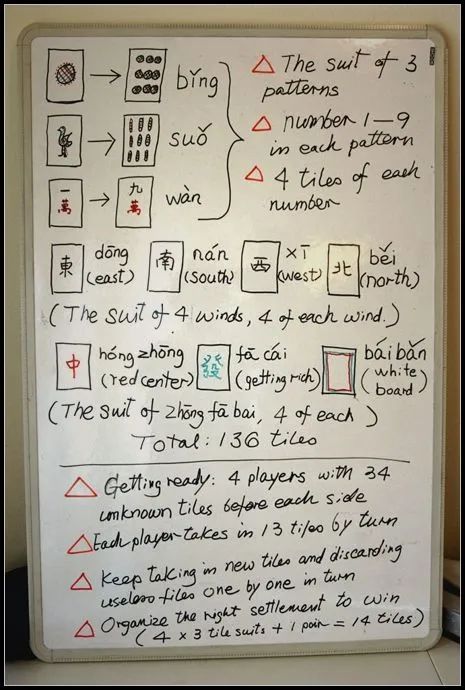 bǐng
suǒ
一萬 → 九萬 wàn
△ The suit of 3
patterns
△ number 1—9
in each pattern
△ 4 tiles of each
number
東 dōng (east) 南 nán (south) 西 xī (west) 北 běi (north)
(The suit of 4 winds, 4 of each wind.)
中 hóng zhōng (red center) 發 fā cái (getting rich) bái bǎn (white board)
(The suit of zhōng fā bai, 4 of each)
Total: 136 tiles
△ Getting ready: 4 players with 34
unknown tiles before each side
△ Each player takes in 13 tiles by turn
△ Keep taking in new tiles and discarding
useless tiles one by one in turn
△ Organize the right settlement to win
(4 x 3 tile suits + 1 pair = 14 tiles)